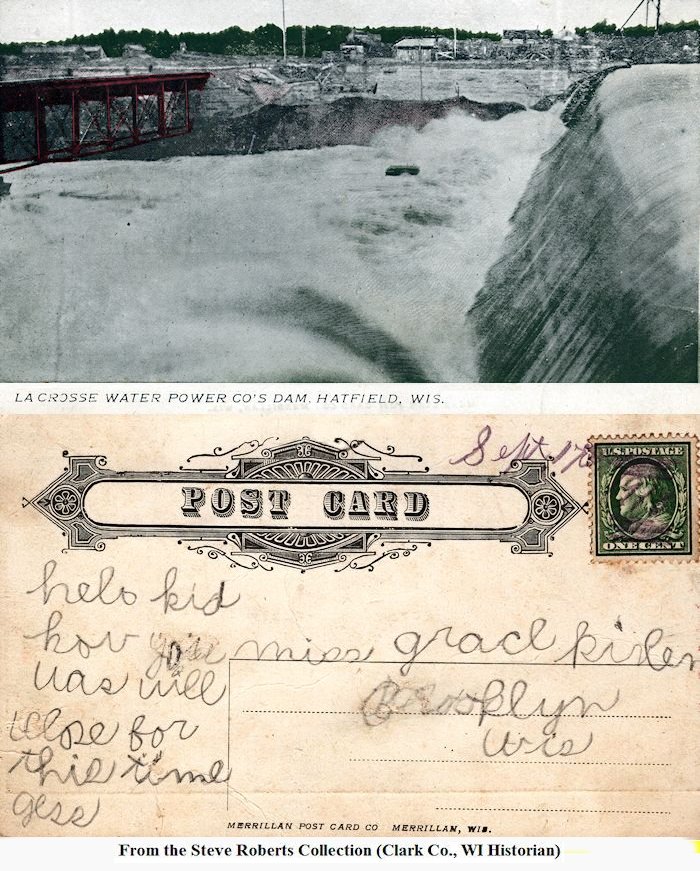 LA CROSSE WATER POWER CO'S DAM. HATFIELD, WIS.
Sept 17
POST CARD
U.S. POSTAGE
ONE CENT
helo kid
how
miss grace kisler
uas will
Brooklyn
Wis
close for
this time
gess
MERRILLAN POST CARD CO MERRILLAN, WIS.
From the Steve Roberts Collection (Clark Co., WI Historian)